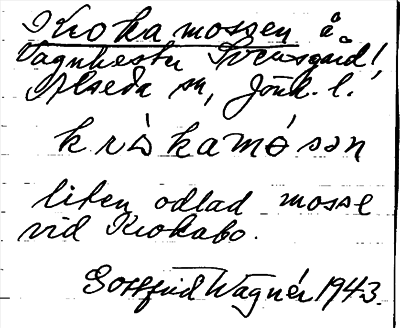 Krokamossen å
Vagnhester Svensgård!
Alseda sn, Jönk. l.
kròkamósən
liten odlad mosse
vid Krokabo.
Gottfrid Wagnér 1943.